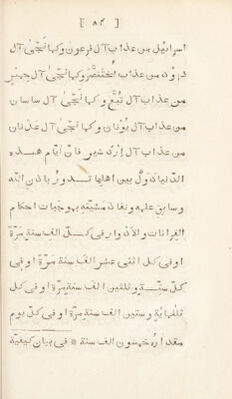 [ ٨٢ ]
اسرائيل من عذاب آل فرعون وكما نجّى آل
داود من عذاب البختنصّر وكما نجّى آل حمير
من عذاب آل تبّع وكما نجّى آل ساسان
من عذاب آل يونان وكما نجّى آل عدنان
من عذاب آل اردشير فانّ ايّام هذه
الدنيا دول بين اهلها تدور باذن الله
وسابق علمه ونفاذ مشيّته بموجبات احكام
القرانات والادوار فى كلّ الف سنة مرّة
او فى كلّ اثنى عشر الف سنة مرّة او فى
كلّ ستّة وثلثين الف سنة مرّة او فى كلّ
ثلثماية وستين الف سنة مرّة او فى كلّ يوم
مقداره خمسون الف سنة * فى بيان كيفيّة